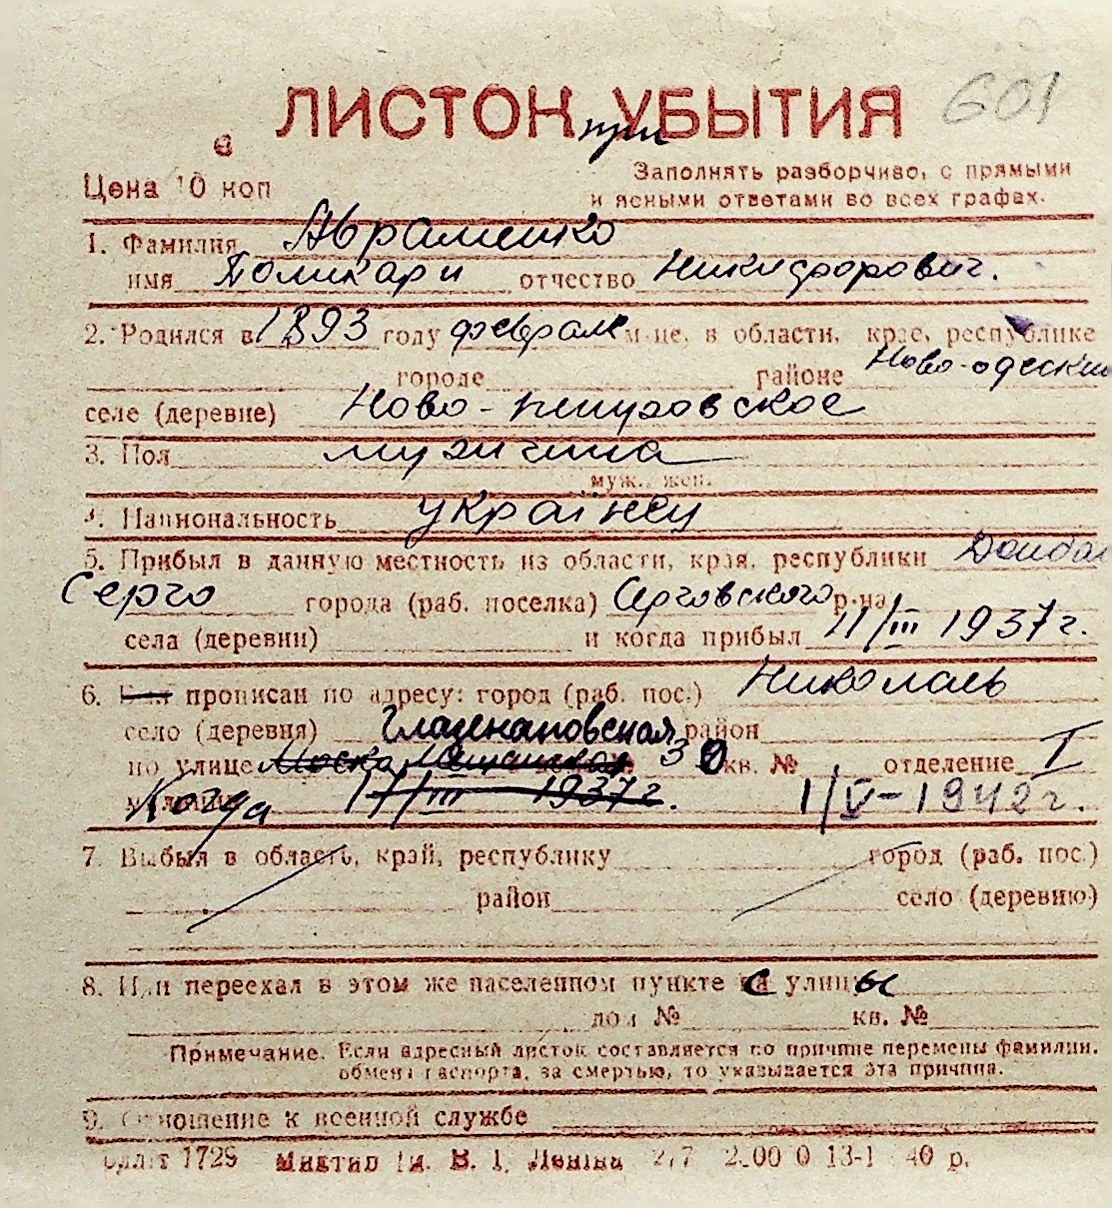 ЛИСТОК УБЫТИЯ 601
при
Цена 10 коп
Заполнять разборчиво, с прямыми
и ясными ответами во всех графах.
1. Фамилия Авраменко
имя Поликарп отчество Никифорович.
2. Родился в 1893 году феврале м-це, в области, крае, республике
городе районе Ново-одеский
селе (деревне) Ново-петровское
3. Пол мужчина
муж., жен.
4. Национальность українец
5. Прибыл в данную местность из области, края, республики Донбас
Серго города (раб. поселка) Серговского р-на
села (деревни) и когда прибыл 11/III 1937г.
6. прописан по адресу: город (раб. пос.) Николаев
село (деревня) Глазенаповская район
по улице 30 кв. № отделение I
Когда 17/III 1937г. 1/V-1942г.
7. Выбыл в область, край, республику город (раб. пос.)
район село (деревню)
8. Или переехал в этом же населенном пункте с улицы
дом № кв. №
Примечание. Если адресный листок составляется по причине перемены фамилии,
обмена паспорта, за смертью, то указывается эта причина.
9. Отношение к военной службе
1729 В. І. Леніна 13-1 40 р.